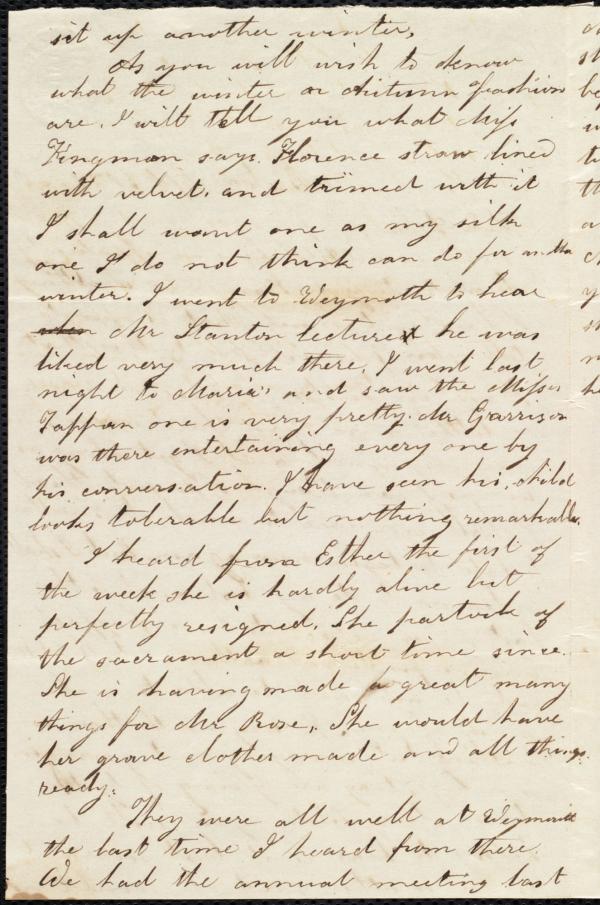 sit up another winter.
As you will wish to know
what the winter or Autumn fashion
are. I will tell you what Miss
Kingman says. Florence straw lined
with velvet. and trimed with it
I shall want one as my silk
one I do not think can do for another
winter. I went to Weymoth to hear
when Mr Stanton lecture he was
liked very much there. I went last
night to Maria's and saw the Misses
Tappan one is very pretty. Mr Garrison
was there entertaining every one by
his conversation. I have seen his child
looks tolerable but nothing remarkable.
I heard from Esther the first of
the week she is hardly alive but
perfectly resigned. She partook of
the sacrament a short time since.
She is having made a great many
things for Mr Rose,. She would have
her grave clothes made and all things
ready.
They were all well at Weymouth
the last time I heard from there.
We had the annual meeting last